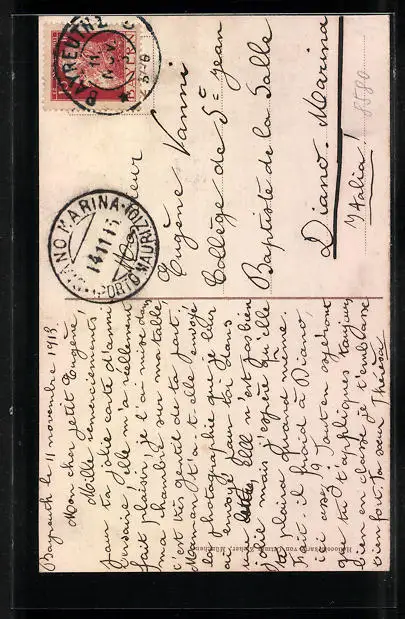 Bayreuth le 11 novembre 1913
Mon cher petit Eugène,
Mille remerciements
pour ta jolie carte d'anni
versaire! Elle m'a réellement
fait plaisir, je l'ai mise dans
ma chambre sur ma table,
c'est très gentil de ta part.
Maman t'a-t-elle envoyé
la photographie que je leur
ai envoyé pour toi dans
une lettre. Elle n'est pas bien
jolie mais j'espère qu'elle
te plaira quand même.
Fait il froid à Diano,
ici assez! Tout en espérant
que tu t'appliques toujours
bien en classe je t'embrasse
bien fort ta sœur Thérèse
Monsieur
Eugène Vanni
Collège de St Jean
Baptiste de la Salle
Diano-Marina
Italia!
8580
BAYREUTH 2
11 NOV
BAYERN
DIANO MARINA
14.11.13
(PORTO MAURIZIO)